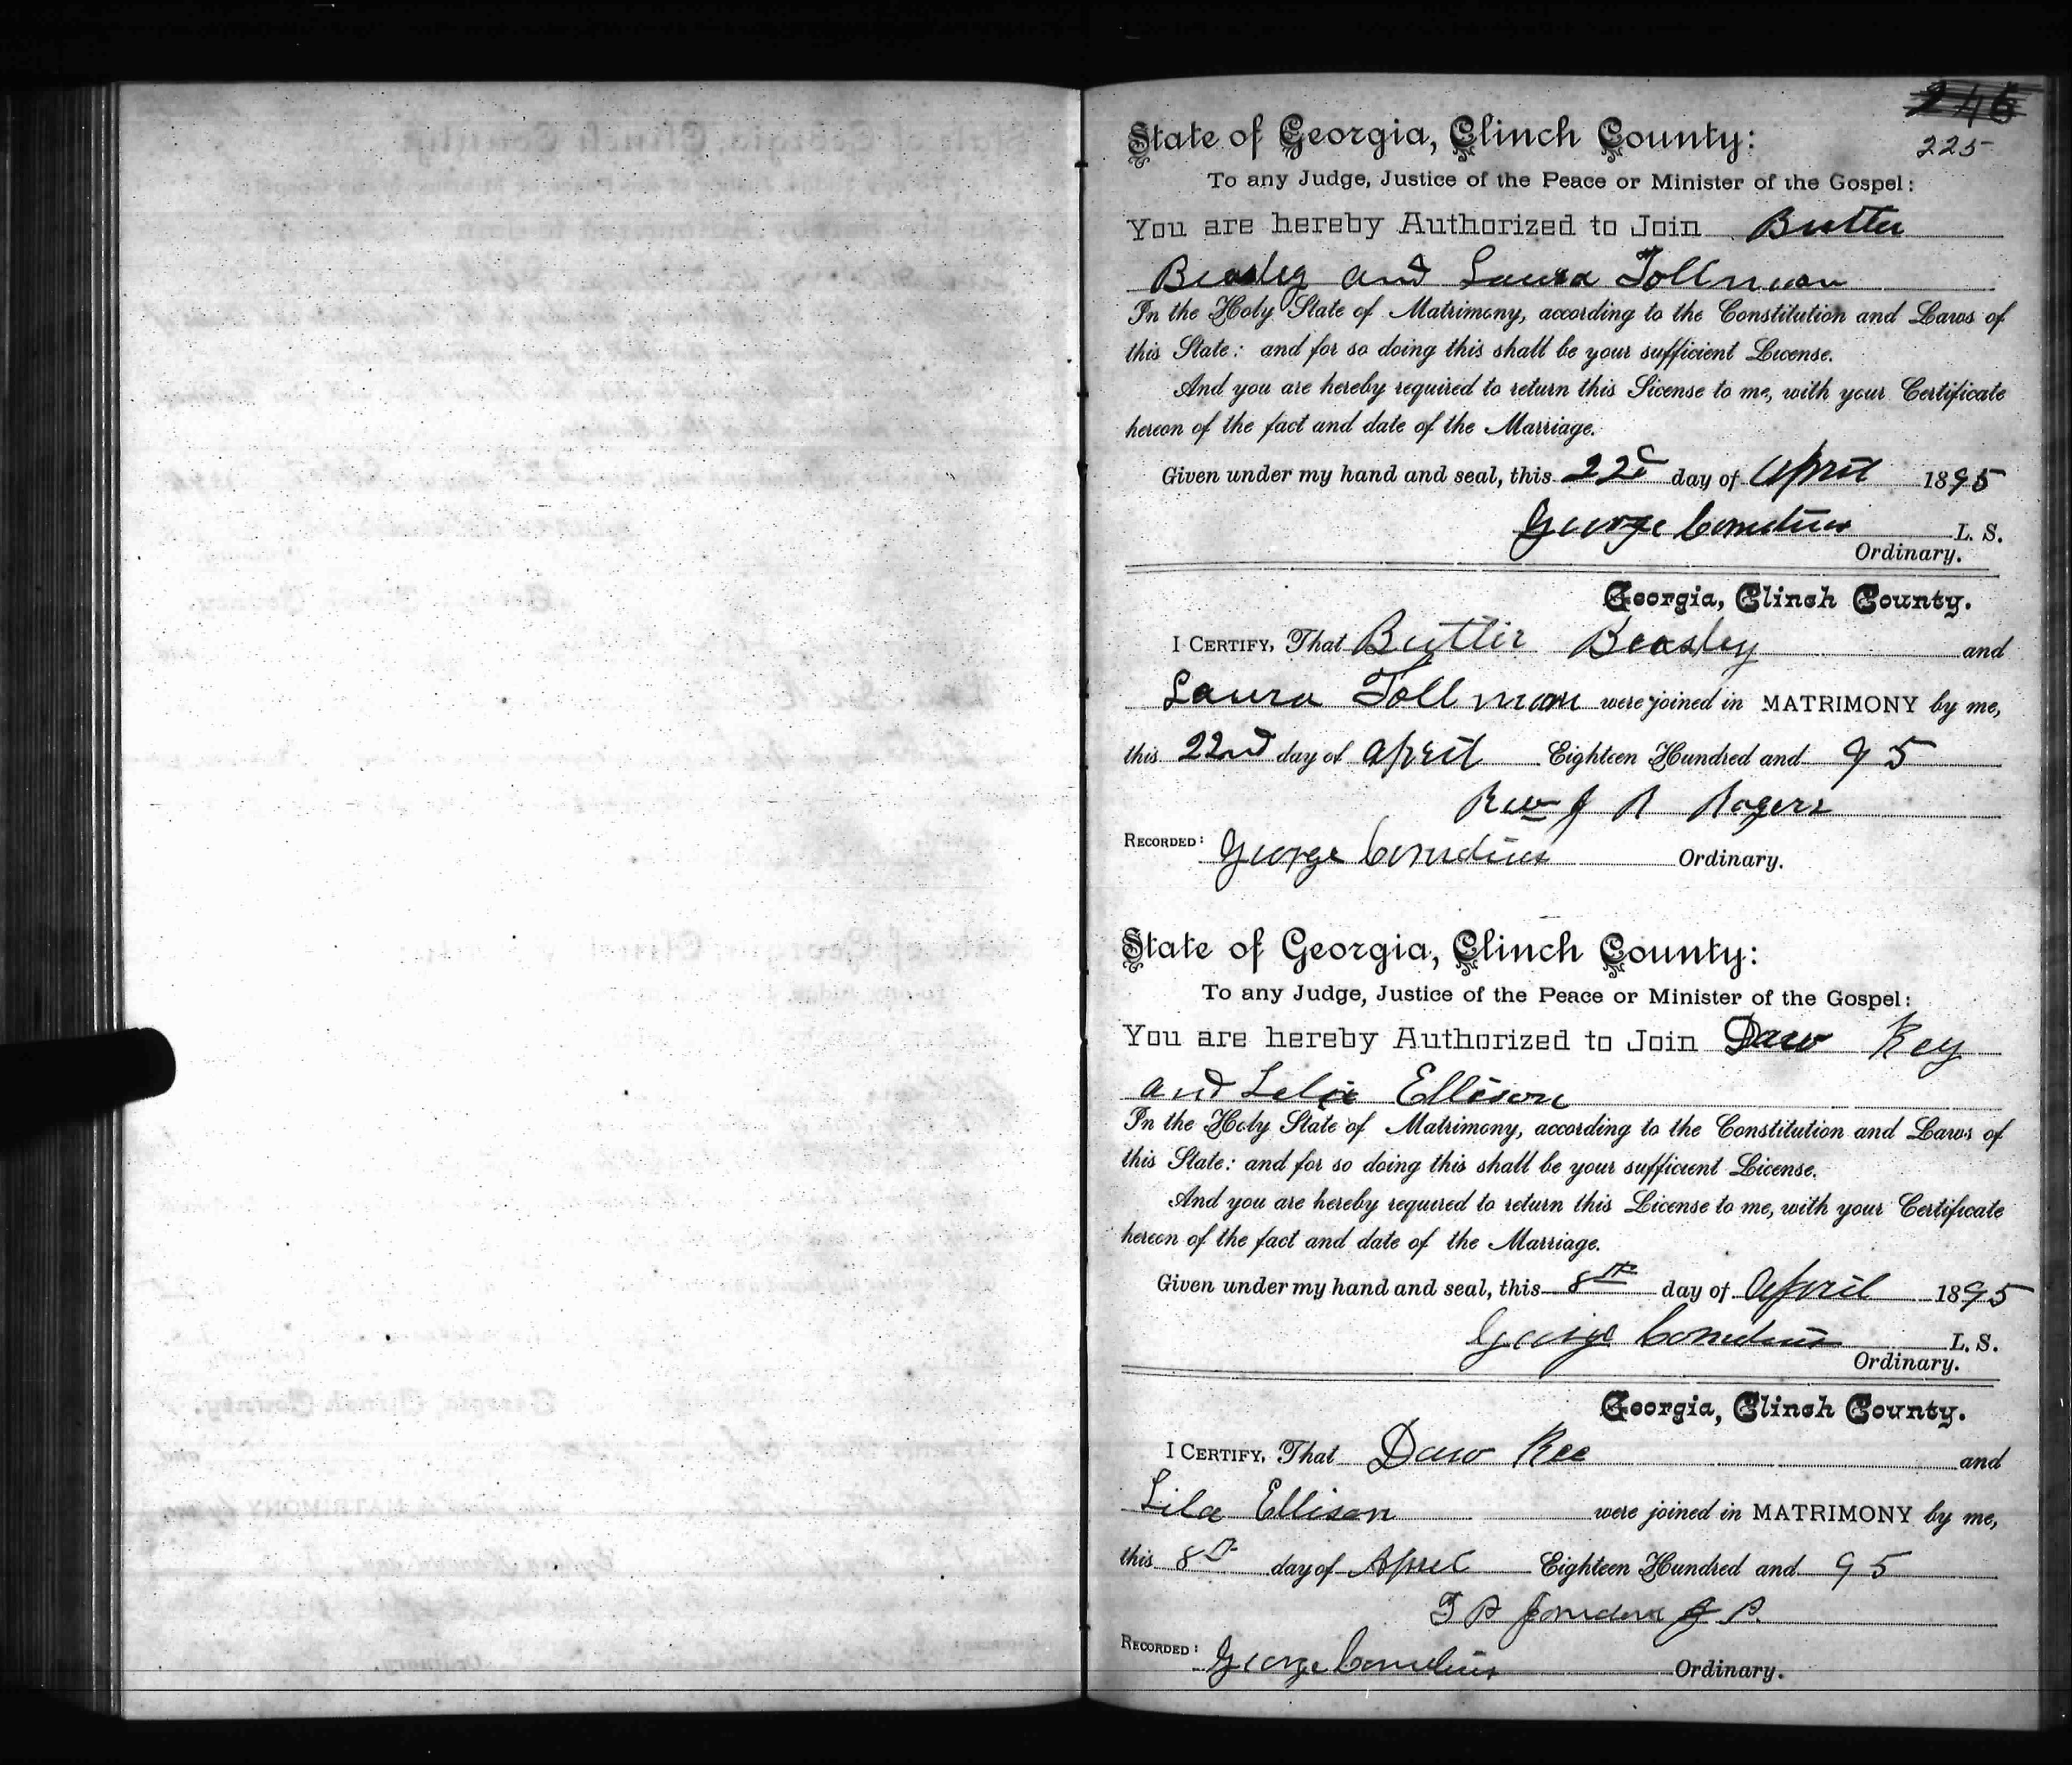 246
225
State of Georgia, Clinch County:
To any Judge, Justice of the Peace or Minister of the Gospel:
You are hereby Authorized to Join Butler
Beasley and Laura Tollman
In the Holy State of Matrimony, according to the Constitution and Laws of
this State: and for so doing this shall be your sufficient License.
And you are hereby required to return this License to me, with your Certificate
hereon of the fact and date of the Marriage.
Given under my hand and seal, this 22d day of April 1895
George L. S.
Ordinary.
Georgia, Clinch County.
I CERTIFY, That Butler Beasley and
Laura Tollman were joined in MATRIMONY by me,
this 22nd day of April Eighteen Hundred and 95
Rev J R Rogers
RECORDED: George Ordinary.
State of Georgia, Clinch County:
To any Judge, Justice of the Peace or Minister of the Gospel:
You are hereby Authorized to Join Daw Key
and Lelia Ellison
In the Holy State of Matrimony, according to the Constitution and Laws of
this State: and for so doing this shall be your sufficient License.
And you are hereby required to return this License to me, with your Certificate
hereon of the fact and date of the Marriage.
Given under my hand and seal, this 8th day of April 1895
George L. S.
Ordinary.
Georgia, Clinch County.
I CERTIFY, That Daw Kee and
Lila Ellison were joined in MATRIMONY by me,
this 8th day of April Eighteen Hundred and 95
J P.
RECORDED: George Ordinary.